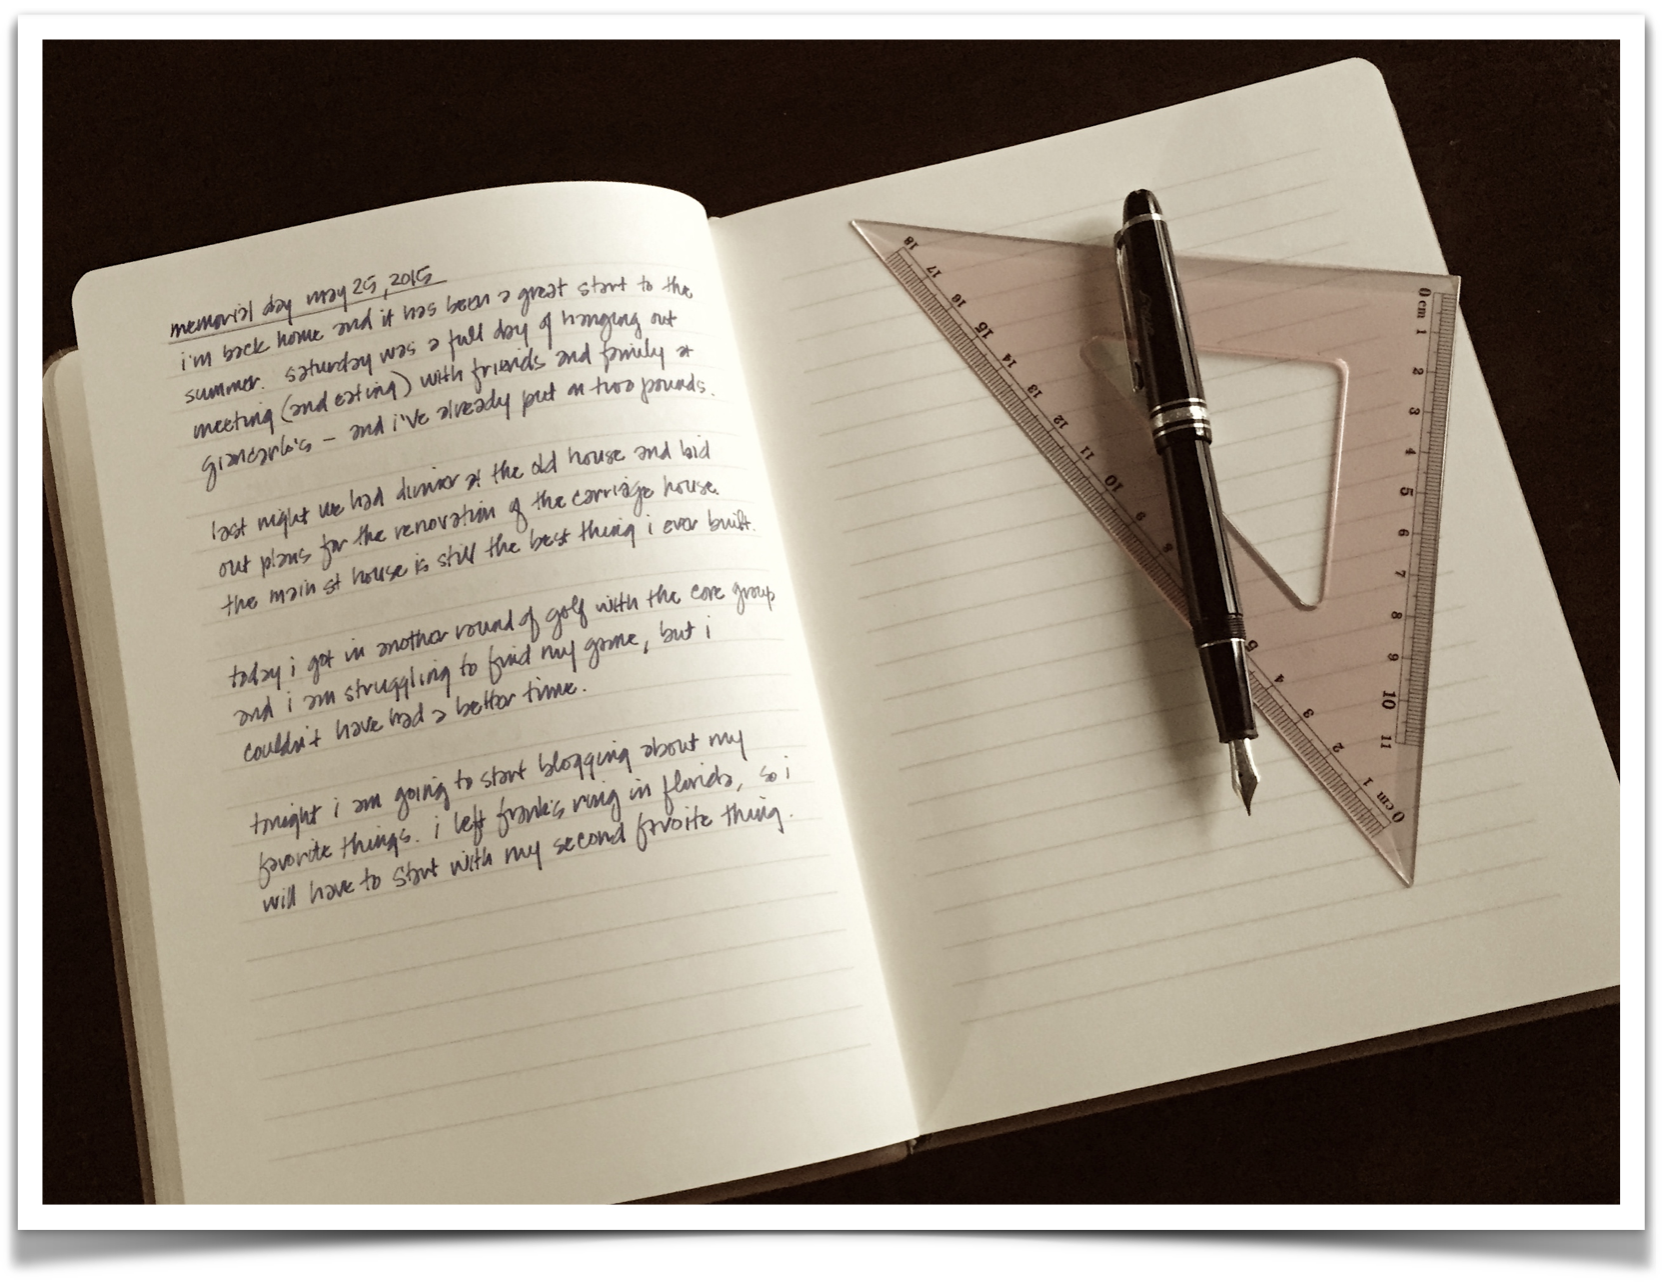 memorial day may 25, 2015
i'm back home and it has been a great start to the
summer. saturday was a full day of hanging out
meeting (and eating) with friends and family at
giancarlo's – and i've already put on two pounds.
last night we had dinner at the old house and bid
out plans for the renovation of the carriage house.
the main st house is still the best thing i ever built.
today i got in another round of golf with the core group
and i am struggling to find my game, but i
couldn't have had a better time.
tonight i am going to start blogging about my
favorite things. i left frank's ring in florida, so i
will have to start with my second favorite thing.
18
17
16
15
14
13
12
11
10
9
8
5
4
3
2
1
0 cm
0 cm
1
2
3
4
5
6
7
8
9
10
11